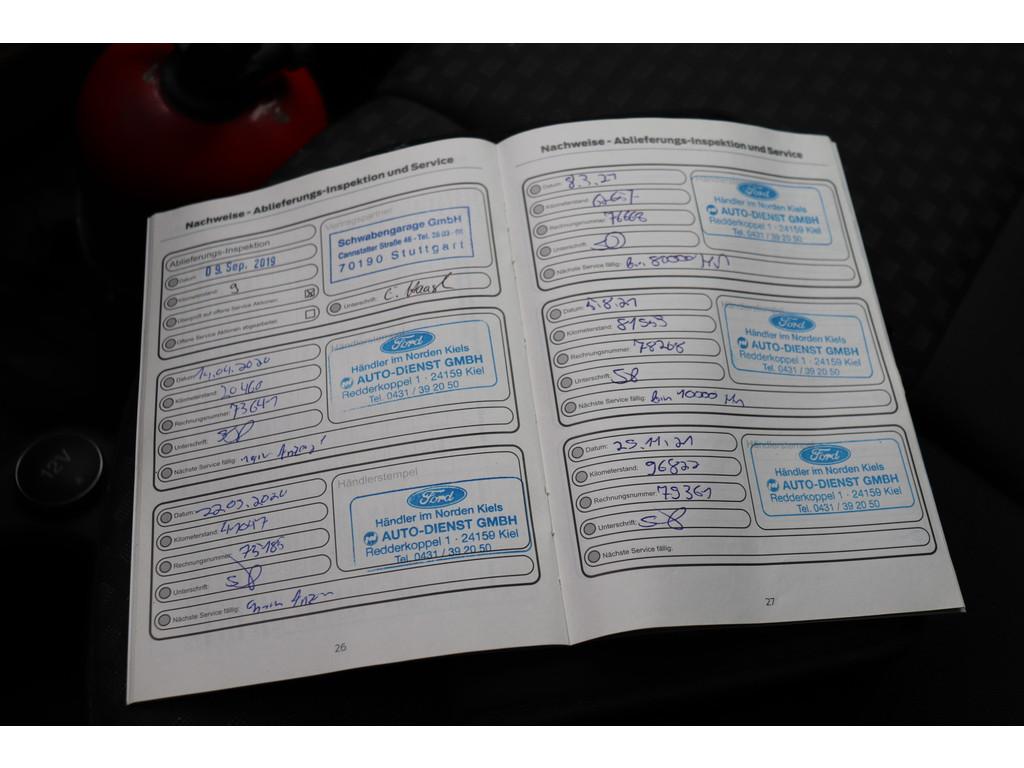 Nachweise - Ablieferungs-Inspektion und Service
Ablieferungs-Inspektion
Vertragspartner
Datum: 09. Sep. 2019
Schwabengarage GmbH
Cannstatter Straße 46 - Tel.
70190 Stuttgart
Kilometerstand: 9
Überprüft auf offene Service Aktionen:
Offene Service Aktionen abgearbeitet:
Unterschrift:
Datum: 14.04.2020
Kilometerstand: 20460
Rechnungsnummer: 73641
Unterschrift:
Nächste Service fällig:
Händlerstempel
Ford
Händler im Norden Kiels
AUTO-DIENST GMBH
Redderkoppel 1 · 24159 Kiel
Tel. 0431 / 39 20 50
Datum:
Kilometerstand:
Rechnungsnummer:
Unterschrift:
Nächste Service fällig:
Händlerstempel
Ford
Händler im Norden Kiels
AUTO-DIENST GMBH
Redderkoppel 1 · 24159 Kiel
Tel. 0431 / 39 20 50
26
Nachweise - Ablieferungs-Inspektion und Service
Datum: 8.3.21
Kilometerstand:
Rechnungsnummer: 76668
Unterschrift:
Nächste Service fällig:
Händlerstempel
Ford
Händler im Norden Kiels
AUTO-DIENST GMBH
Redderkoppel 1 - 24159 Kiel
Tel. 0431 / 39 20 50
Datum: 5.8.21
Kilometerstand:
Rechnungsnummer: 78268
Unterschrift:
Nächste Service fällig:
Händlerstempel
Ford
Händler im Norden Kiels
AUTO-DIENST GMBH
Redderkoppel 1 · 24159 Kiel
Tel. 0431 / 39 20 50
Datum: 25.11.21
Kilometerstand: 96822
Rechnungsnummer: 79361
Unterschrift:
Nächste Service fällig:
Händlerstempel
Ford
Händler im Norden Kiels
AUTO-DIENST GMBH
Redderkoppel 1 · 24159 Kiel
Tel. 0431 / 39 20 50
27
12V